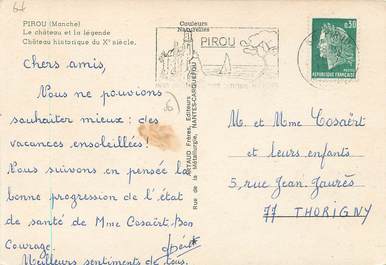 PIROU (Manche)
Le château et la légende
Château historique du Xe siècle.
Couleurs
Naturelles
PIROU
0,30
REPUBLIQUE FRANÇAISE
Chers amis,
Nous ne pouvions
souhaiter mieux : des
vacances ensoleillées!
Nous suivons en pensée la
bonne progression de l'état
de santé de Mme Cosaërt. Bon
Courage.
Meilleurs sentiments de tous.
ARTAUD Frères, Editeurs
Rue de la Métallurgie, NANTES-CARQUEFOU
M. et Mme Cosaërt
et leurs enfants
5, rue Jean Jaurès
77 THORIGNY